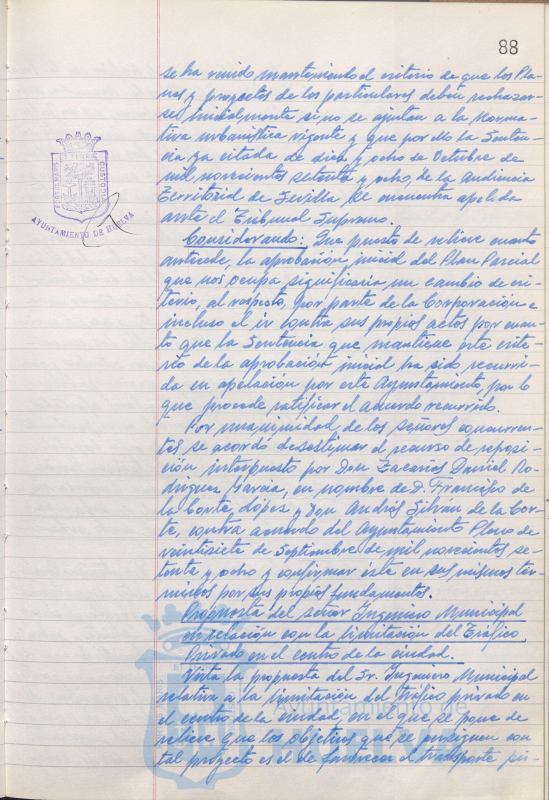 88
se ha venido manteniendo el criterio de que los Pla-
nes y proyectos de los particulares deben rechazar-
se inicialmente si no se ajustan a la Norma-
tiva urbanística vigente y que por ello la Senten-
cia ya citada de diez y ocho de Octubre de
mil novecientos setenta y ocho, de la Audiencia
Territorial de Sevilla se encuentra apelada
ante el Tribunal Supremo.
Considerando: Que puesto de relieve cuanto
antecede, la aprobación inicial del Plan Parcial
que nos ocupa significaría un cambio de cri-
terio, al respecto, por parte de la Corporación e
incluso el ir contra sus propios actos por cuan-
to que la Sentencia que mantiene este crite-
rio de la aprobación inicial ha sido recurri-
da en apelación por este Ayuntamiento, por lo
que procede ratificar el acuerdo recurrido.
Por unanimidad de los señores concurren-
tes se acordó desestimar el recurso de reposi-
ción interpuesto por Don Zacarías Daniel Ro-
dríguez García, en nombre de D. Francisco de
la Corte López y Don Andrés Silván de la Cor-
te, contra acuerdo del Ayuntamiento Pleno de
veintisiete de Septiembre de mil novecientos se-
tenta y ocho y confirmar éste en sus mismos tér-
minos por sus propios fundamentos.
Propuesta del señor Ingeniero Municipal
en relación con la limitación del Tráfico
Privado en el centro de la ciudad.
Vista la propuesta del Sr. Ingeniero Municipal
relativa a la limitación del tráfico privado en
el centro de la ciudad, en el que se pone de
relieve que los objetivos que se persiguen con
tal proyecto es el de favorecer el transporte pú-
AYUNTAMIENTO DE HUELVA
Ayuntamiento de